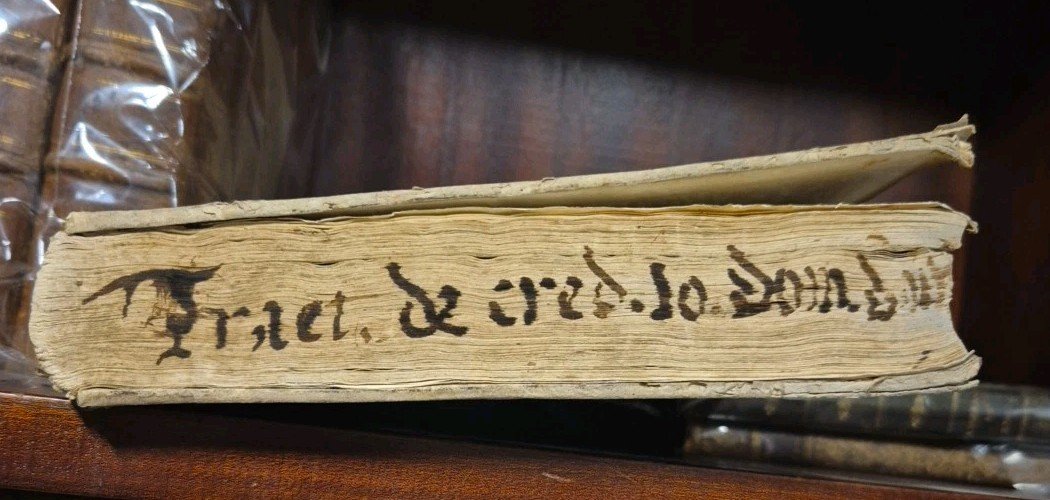 Tract. de cred. Io. Dom.